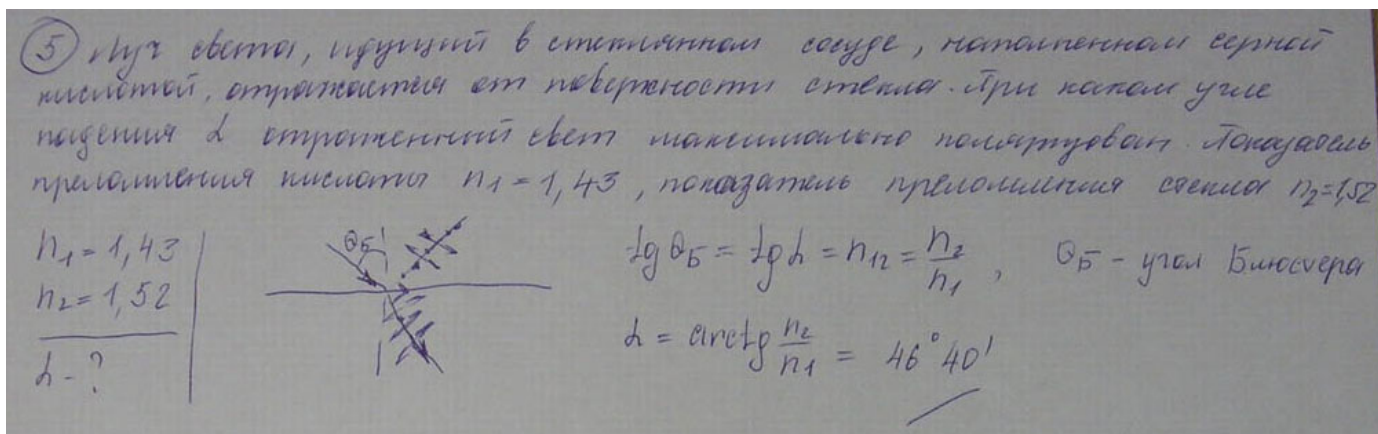 5 Луч света, идущий в стеклянном сосуде, наполненном серной
кислотой, отражается от поверхности стекла. При каком угле
падения α отраженный свет максимально поляризован. Показатель
преломления кислоты n₁ = 1,43, показатель преломления стекла n₂=1,52
n₁ = 1,43
n₂ = 1,52
α - ?
θБ
tg θБ = tg α = n₁₂ = n₂/n₁, θБ - угол Блюстера
α = arctg n₂/n₁ = 46°40'